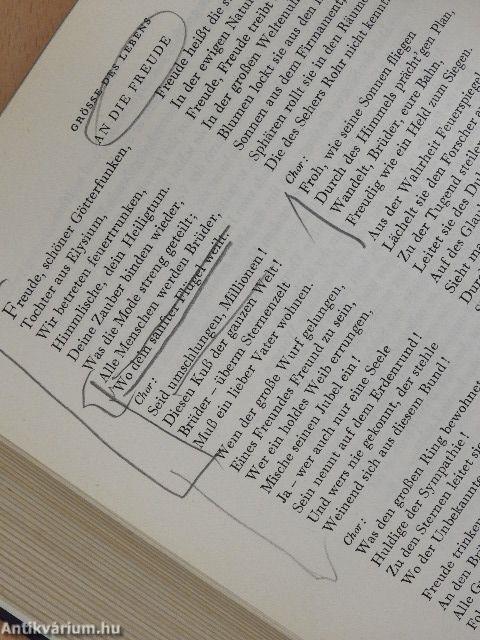 GRÖSSE DES LEBENS
AN DIE FREUDE
Freude, schöner Götterfunken,
Tochter aus Elysium,
Wir betreten feuertrunken,
Himmlische, dein Heiligtum.
Deine Zauber binden wieder,
Was die Mode streng geteilt;
Alle Menschen werden Brüder,
Wo dein sanfter Flügel weilt.
Chor:
Seid umschlungen, Millionen!
Diesen Kuß der ganzen Welt!
Brüder – überm Sternenzelt
Muß ein lieber Vater wohnen.
Wem der große Wurf gelungen,
Eines Freundes Freund zu sein,
Wer ein holdes Weib errungen,
Mische seinen Jubel ein!
Ja – wer auch nur eine Seele
Sein nennt auf dem Erdenrund!
Und wers nie gekonnt, der stehle
Weinend sich aus diesem Bund!
Chor:
Was den großen Ring bewohnet
Huldige der Sympathie!
Zu den Sternen leitet sie
Wo der Unbekannte
Freude trinken
An den Brü
Alle G
Freude heißt die
In der ewigen Natur
Freude, Freude treibt
In der großen Weltenuh
Blumen lockt sie aus den
Sonnen aus dem Firmament,
Sphären rollt sie in den Räum
Die des Sehers Rohr nicht kennt.
Chor:
Froh, wie seine Sonnen fliegen
Durch des Himmels prächt'gen Plan,
Wandelt, Brüder, eure Bahn,
Freudig wie ein Held zum Siegen.
Aus der Wahrheit Feuerspiegel
Lächelt sie den Forscher a
Zu der Tugend steile
Leitet sie des Dul
Auf des Glau
Sieht ma
Durc
Antikvárium.hu